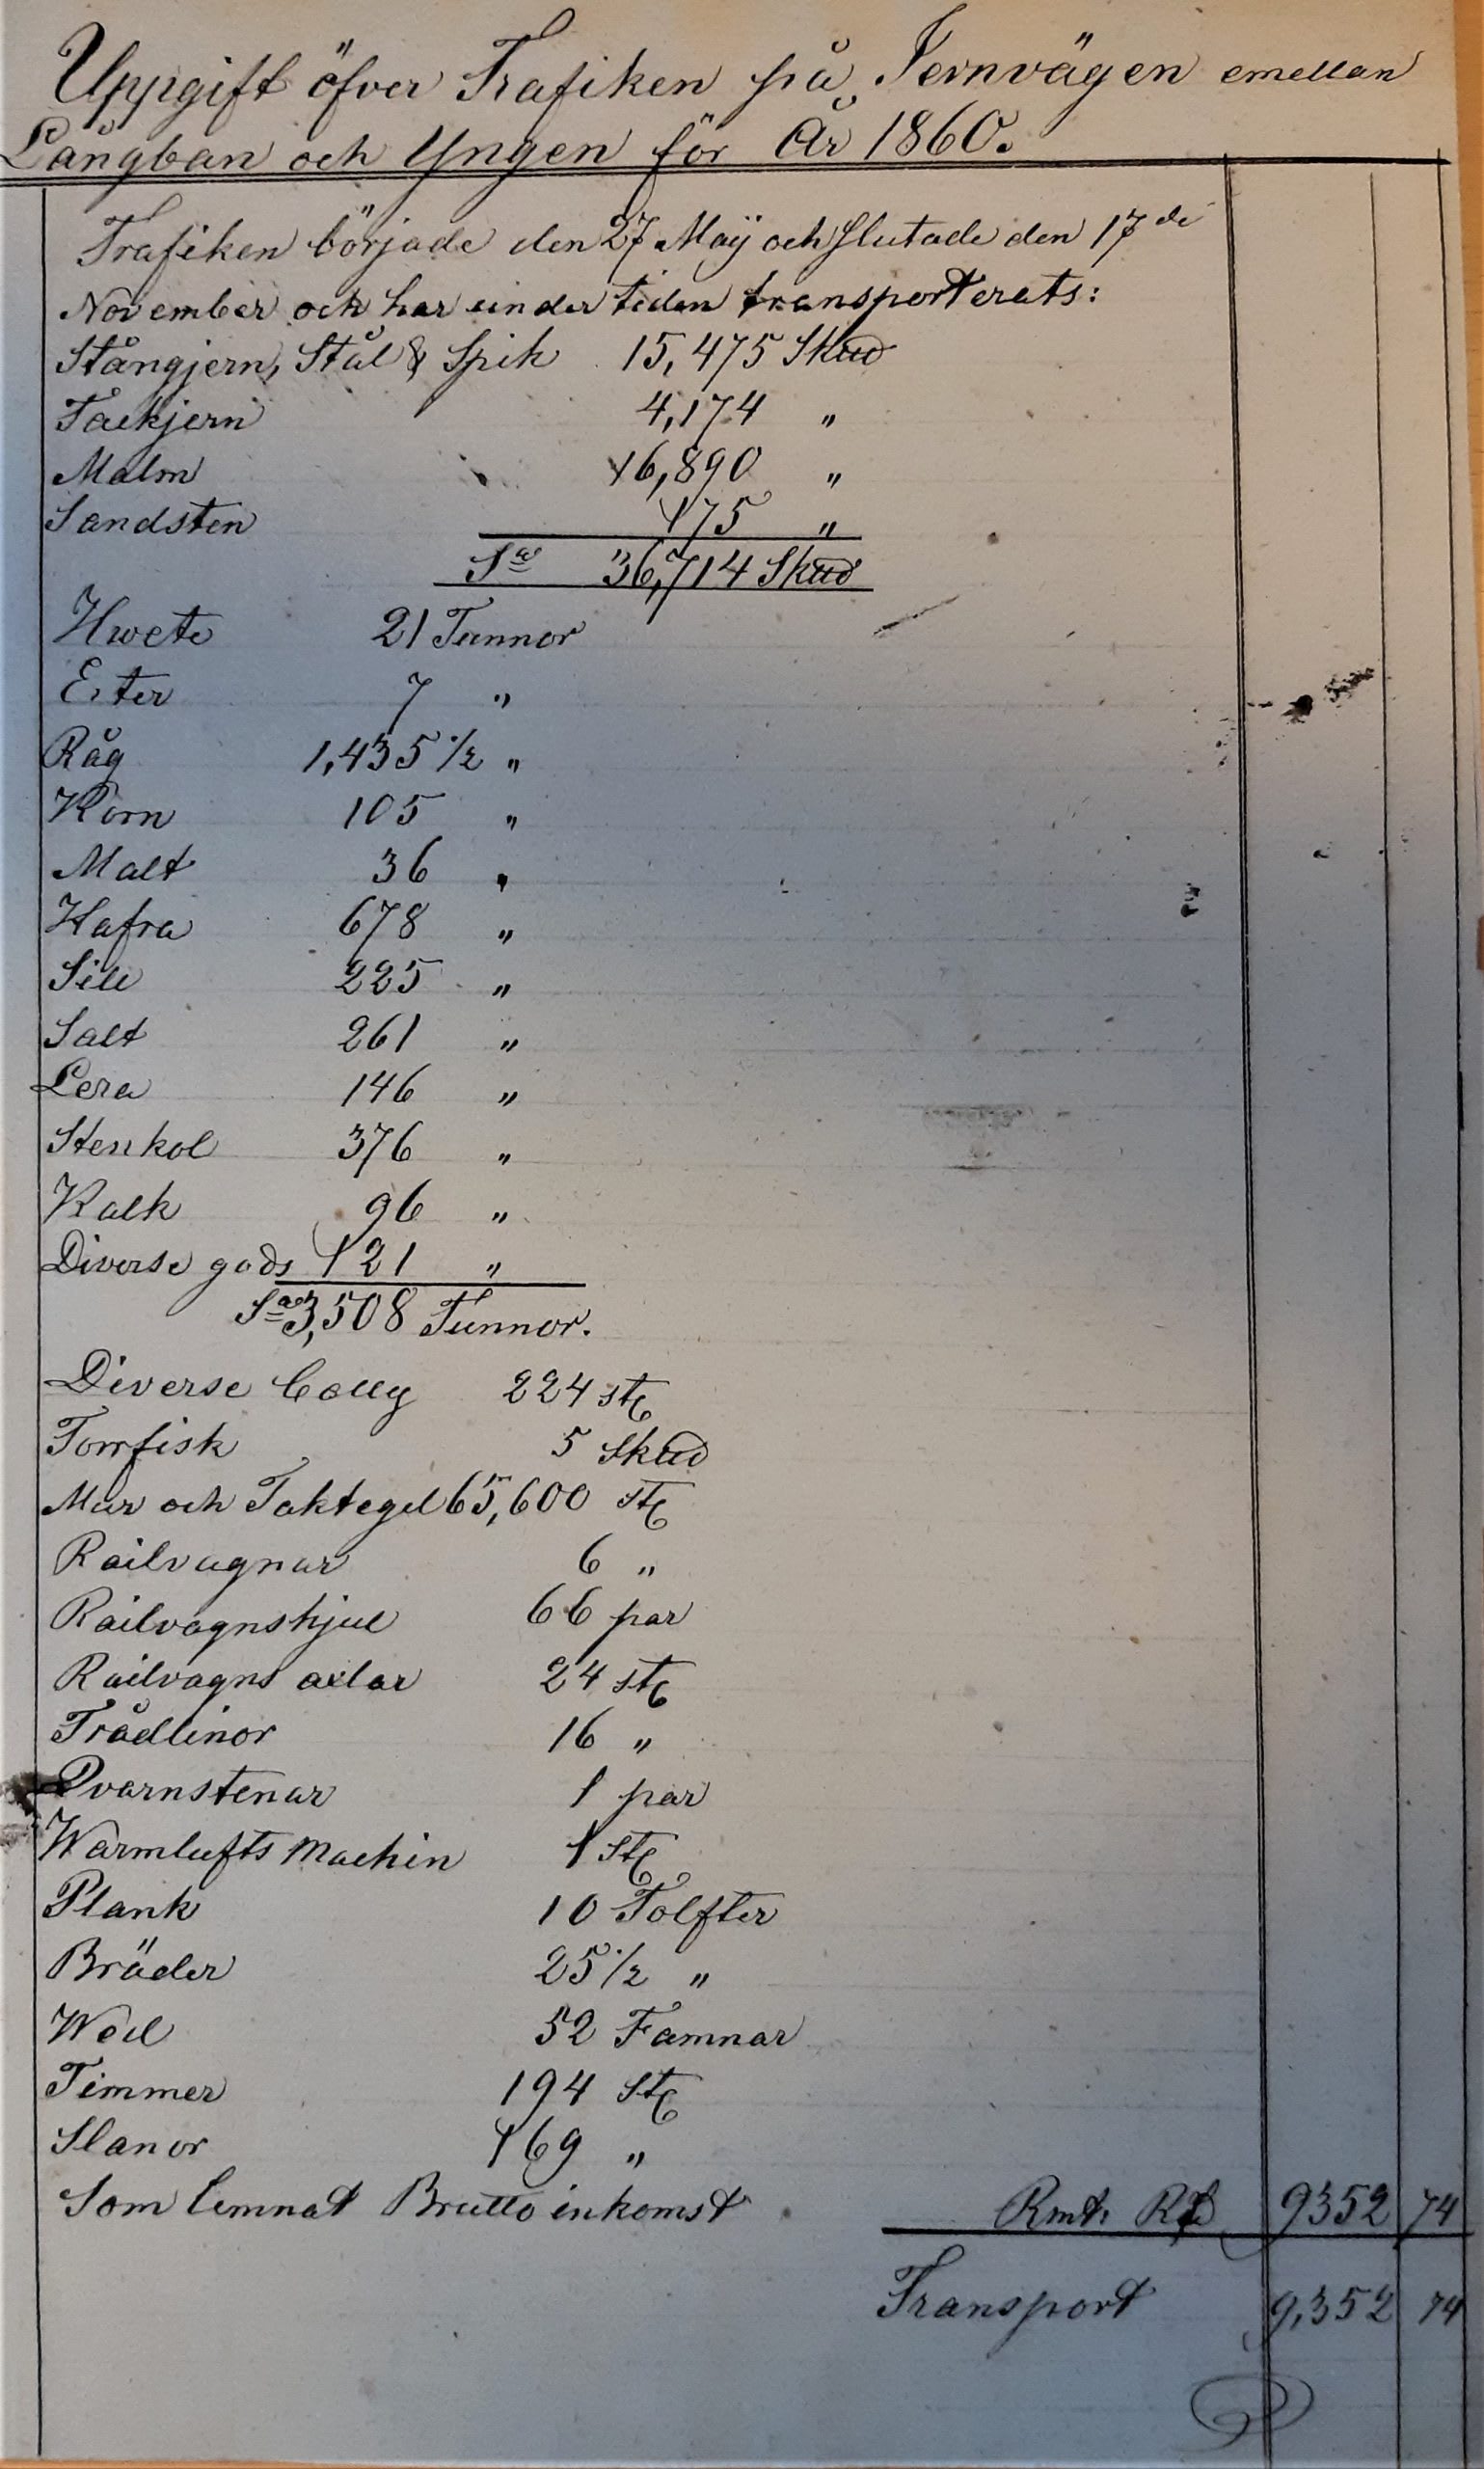 Uppgift öfver Trafiken på Jernvägen emellan
Långban och Yngen för År 1860.
Trafiken började den 27 Maÿ och slutade den 17de
November och har under tiden transporterats:
Stångjern, Stål & Spik 15,475 Skud
Tackjern 4,174 "
Malm 16,890 "
Sandsten 175 "
Sa 36,714 Skud
Hwete 21 Tunnor
Erter 7 "
Råg 1,435 1/2 "
Korn 105 "
Malt 36 "
Hafra 678 "
Sill 225 "
Salt 261 "
Lera 146 "
Stenkol 376 "
Kalk 96 "
Diverse gods 121 "
Sa 3,508 Tunnor.
Diverse Colly 224 st
Torrfisk 5 Skud
Mur och Taktegel 65,600 st
Railvagnar 6 "
Railvagnshjul 66 par
Railvagns axlar 24 st
Trådlinor 16 "
Qvarnstenar 1 par
Warmlufts Machin 1 st
Plank 10 Tolfter
Bräder 25 1/2 "
Wed 52 Famnar
Timmer 194 St
Slanor 169 "
Som lemnat Brutto inkomst Rmt. Rd 9352 74
Transport 9,352 74